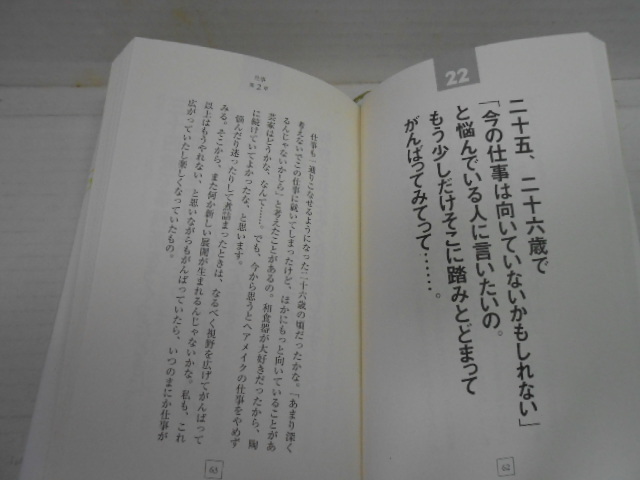 22
二十五、二十六歳で
「今の仕事は向いていないかもしれない」
と悩んでいる人に言いたいの。
もう少しだけそこに踏みとどまって
がんばってみてって……。
62
仕事
第2章
仕事も一通りこなせるようになった二十六歳の頃だったかな。「あまり深く
考えないでこの仕事に就いてしまったけど、ほかにもっと向いていることがあ
るんじゃないかしら」と考えたことがあるの。和食器が大好きだったから、陶
芸家はどうかな、なんて……。でも、今から思うとヘアメイクの仕事をやめず
に続けていてよかったな、と思います。
悩んだり迷ったりして煮詰まったときは、なるべく視野を広げてがんばって
みる。そこから、また何か新しい展開が生まれるんじゃないかな。私も、これ
以上はもうやれない、と思いながらもがんばっていたら、いつのまにか仕事が
広がっていたし楽しくなっていたもの。
63